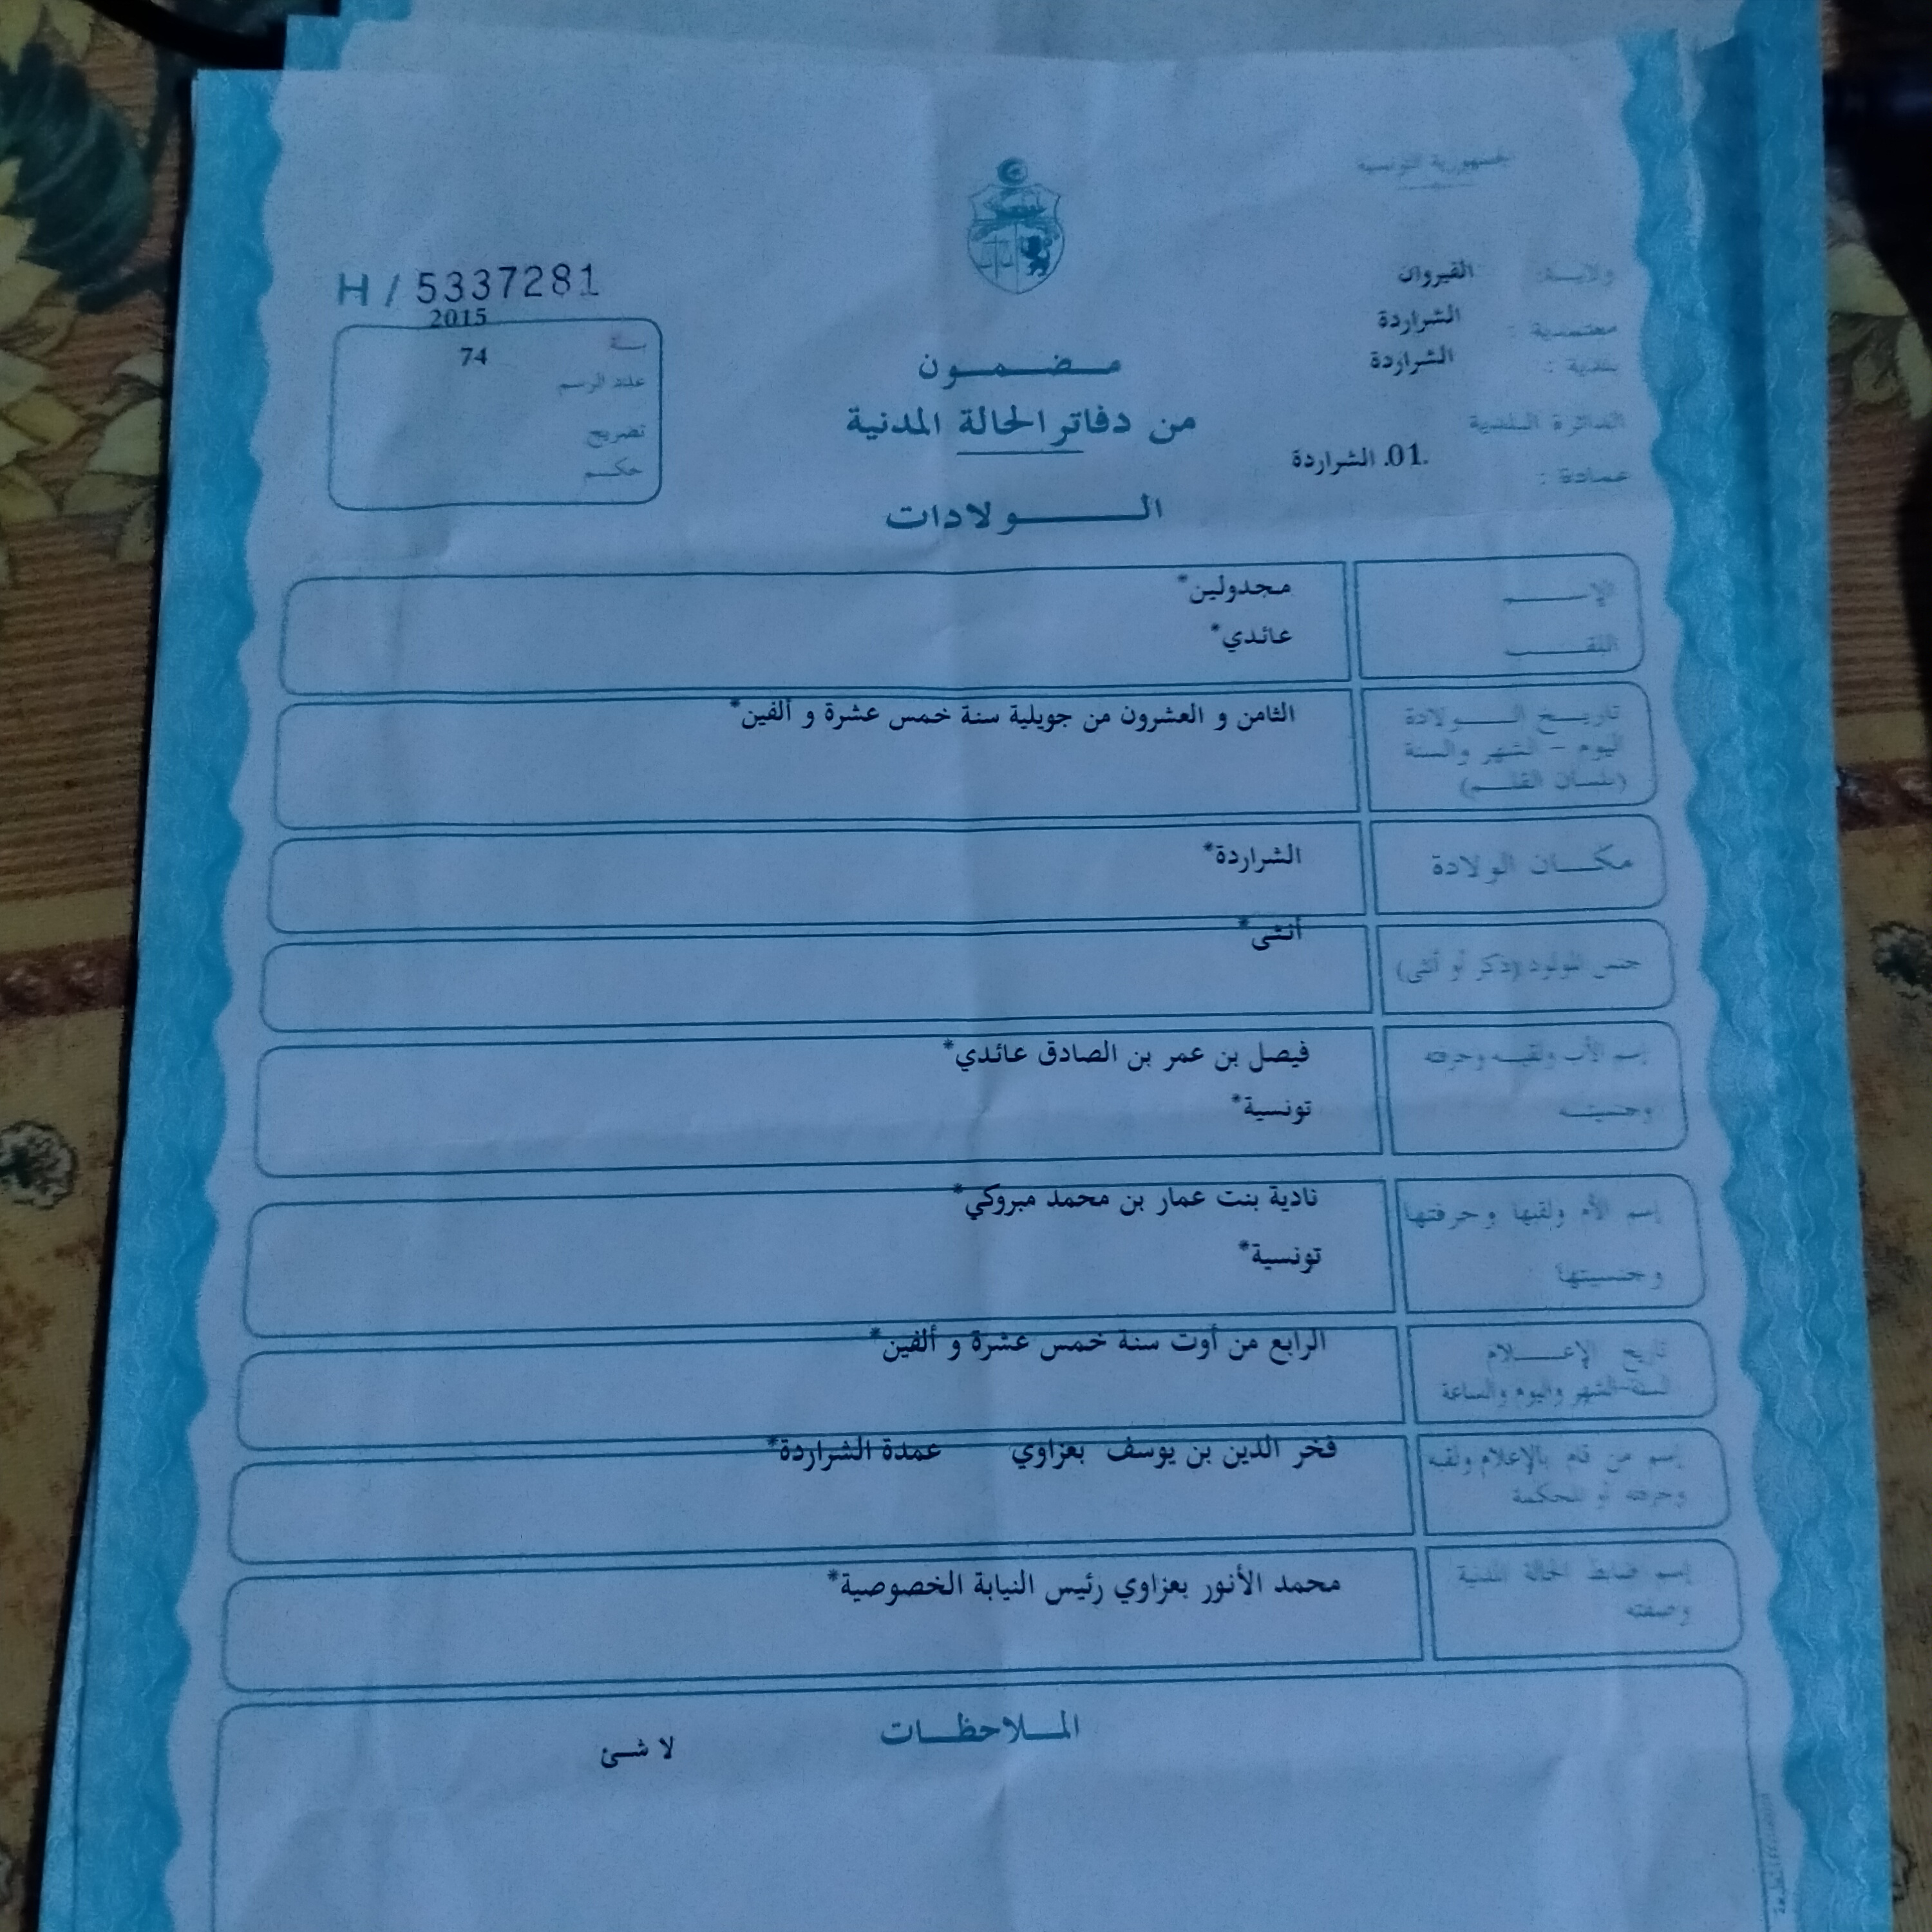 الجمهورية التونسية
ولاية: القيروان
معتمدية : الشراردة
بلدية : الشراردة
الدائرة البلدية
عمادة : .01. الشراردة
H / 5337281
2015
سنة
74
عدد الرسم
تصريح
حكم
مضمون
من دفاتر الحالة المدنية
الولادات
الإسم مجدولين*
اللقب عائدي*
تاريخ الولادة الثامن و العشرون من جويلية سنة خمس عشرة و ألفين*
اليوم – الشهر والسنة
(بلسان القلم)
مكان الولادة الشراردة*
جنس المولود (ذكر أو أنثى) أنثى*
إسم الأب ولقبه وحرفته فيصل بن عمر بن الصادق عائدي*
وجنسيته تونسية*
إسم الأم ولقبها وحرفتها نادية بنت عمار بن محمد مبروكي*
وجنسيتها تونسية*
تاريخ الإعلام الرابع من أوت سنة خمس عشرة و ألفين*
السنة-الشهر واليوم والساعة
إسم من قام بالإعلام ولقبه فخر الدين بن يوسف بعزاوي عمدة الشراردة*
وحرفته أو المحكمة
إسم ضابط الحالة المدنية محمد الأنور بعزاوي رئيس النيابة الخصوصية*
وصفته
الملاحظات
لا شئ